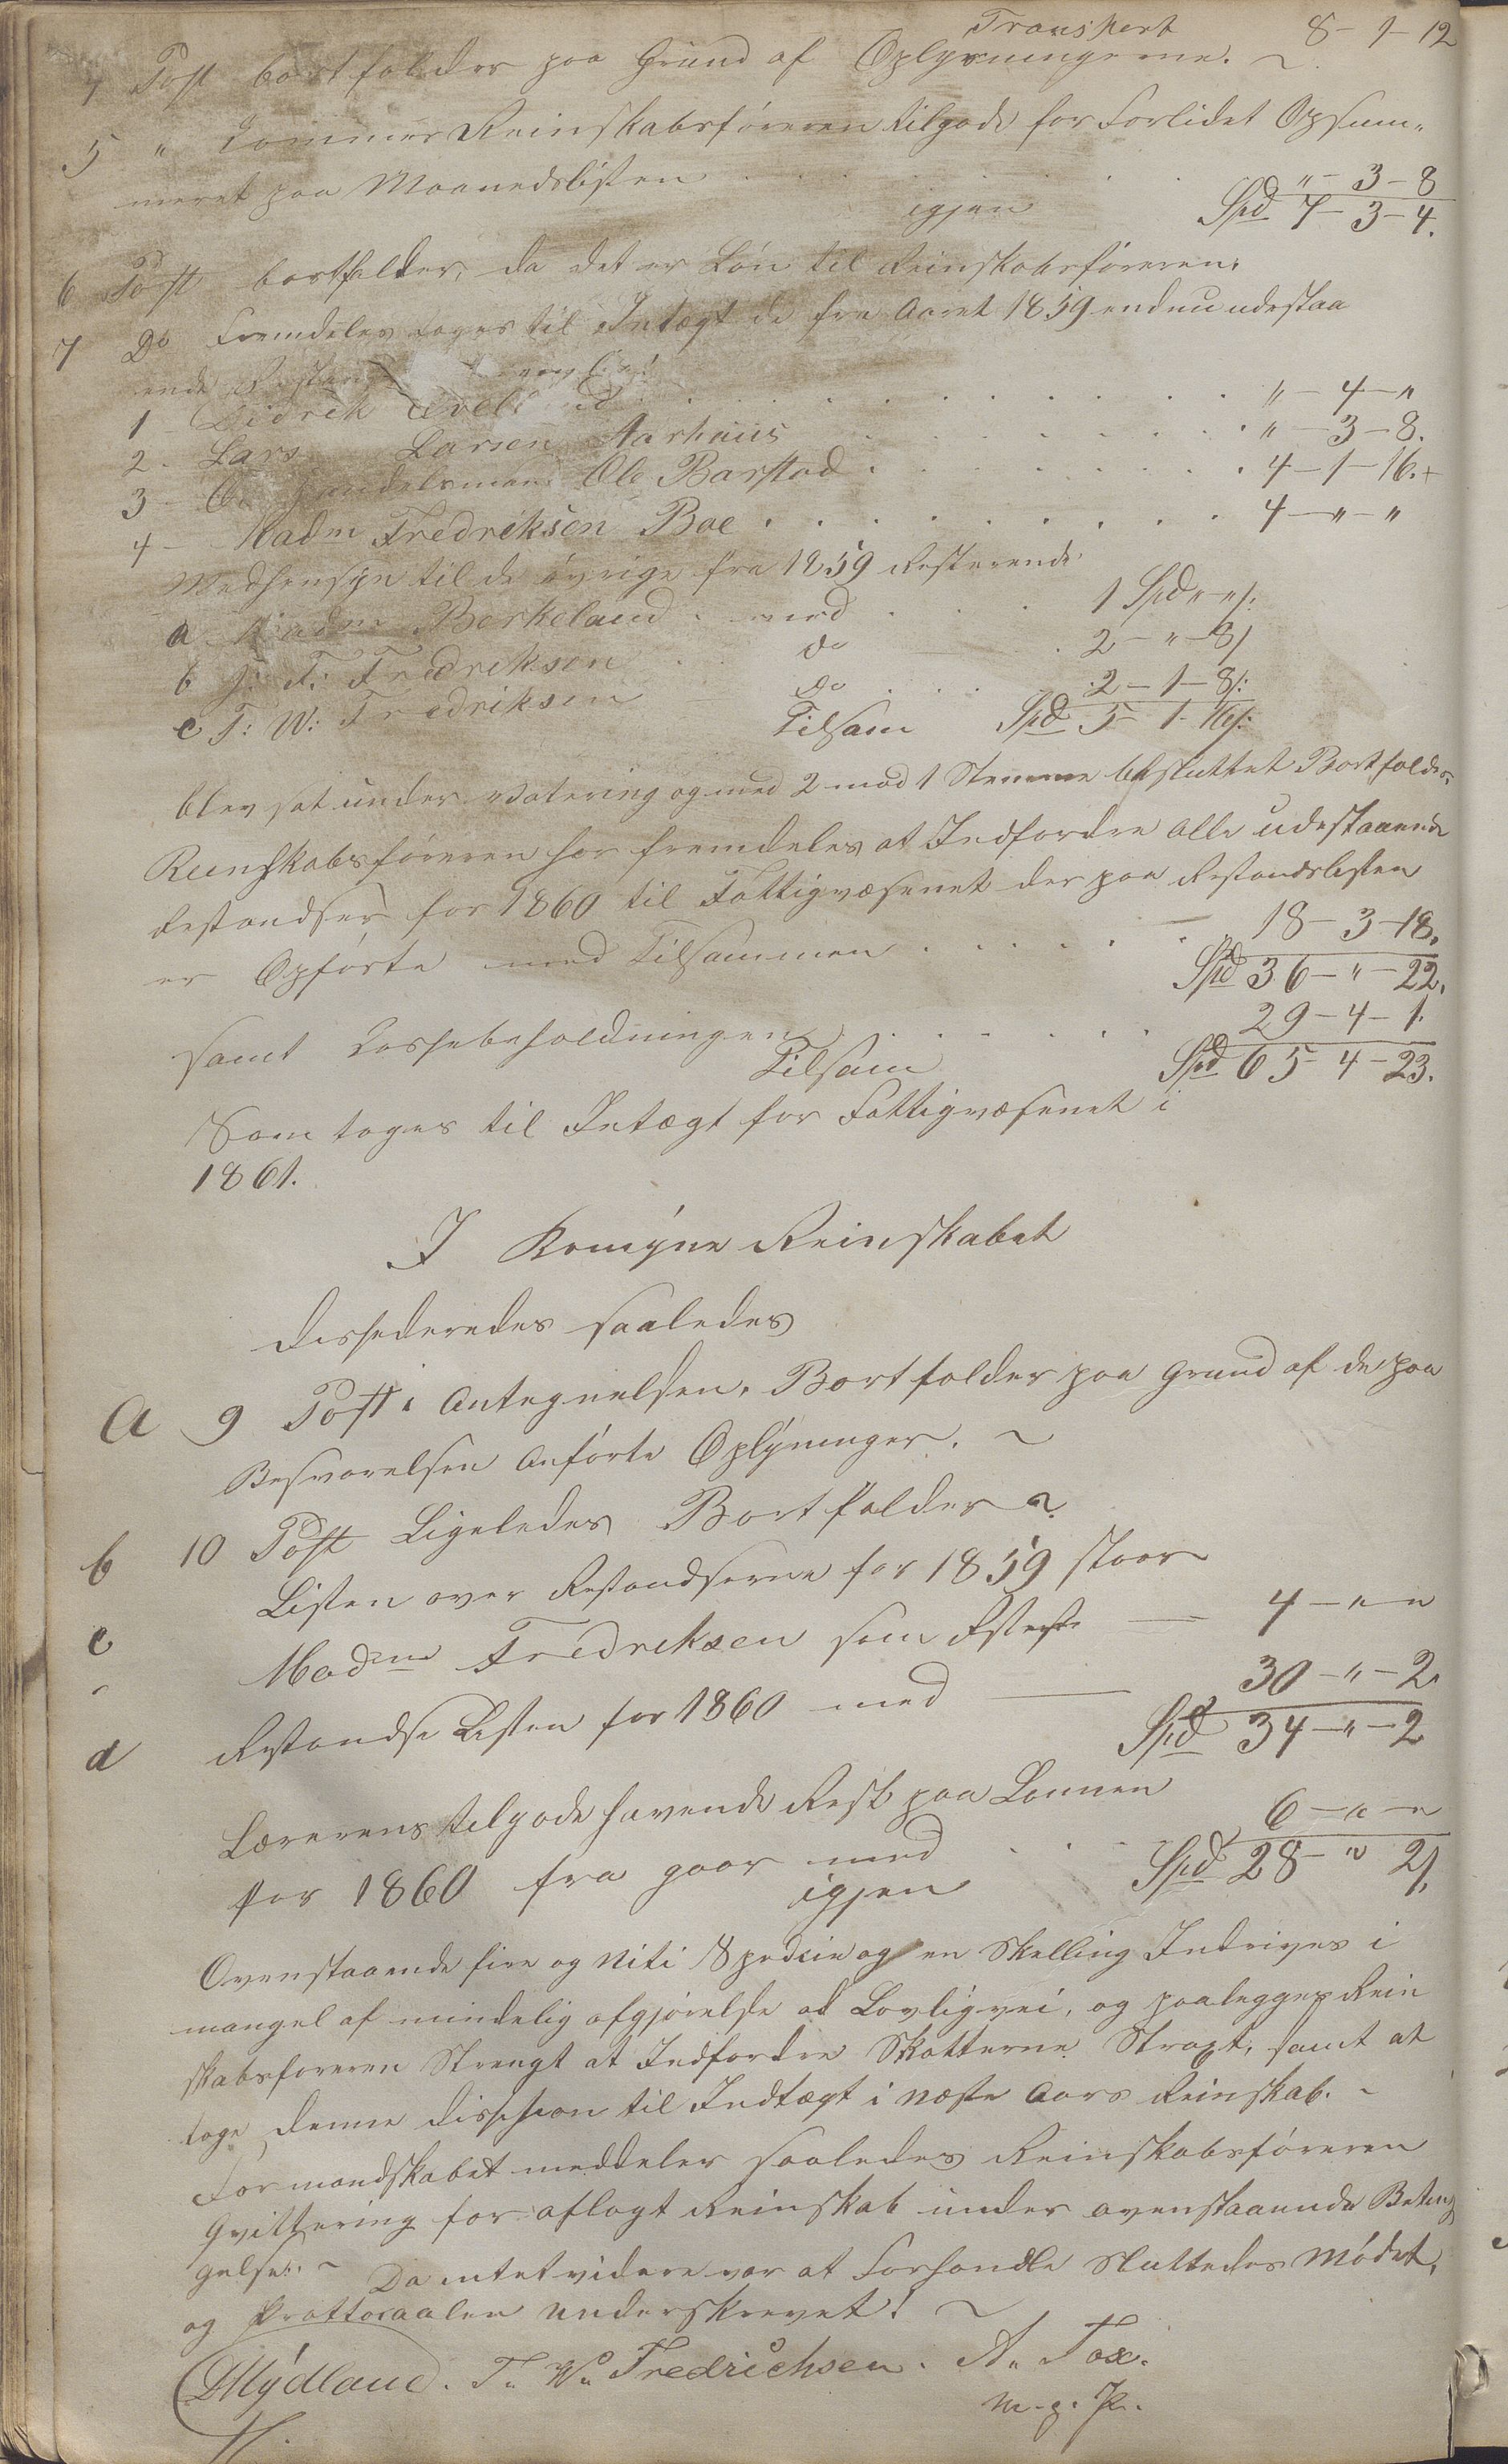 Transport 8 - 1 - 12
4 Post bortfalder paa Grund af Oplysningerne. ~
5 " kommer Reinskabsføreren tilgode for Forlidet Opsum-
meret paa Maanedslisten . . . . . " - 3 - 8
igjen Spd 7 - 3 - 4.
6 Post bortfalder, da det er Løn til Reinskabsføreren.
7 Do Fremdeles tages til Intægt de fra Aaret 1859 endnu udestaa
ende
1 - Didrik . . . . . " - 4 - "
2 - Lars Larsen Aarhuus . . . . . " - 3 - 8.
3 - Handelsmand Ole Barstad . . . . . 4 - 1 - 16. +
4 - Madm Fredriksen Boe . . . . . 4 - " - "
Medhensyn til de øvrige fra 1859 Resterende
a Madm Berkeland . med . . . 1 Spd " - " /:
b J: F: Fredriksen . . do . 2 - " - 8 /
c T: W: Fredriksen - do . . . 2 - 1 - 8 /:
Tilsam Spd 5 - 1 - 16 /:
blev sat under Votering og med 2 mod 1 Stemme besluttet Bortfalder.
Reinskabsføreren har fremdeles at Indfordre alle udestaaende
Restandser for 1860 til Fattigvæsenet der paa Restandslisten
er Opførte med Tilsammen . . . . . 18 - 3 - 18.
Spd 36 - " - 22.
samt Kassebeholdningen . . . . . 29 - 4 - 1.
Tilsam Spd 65 - 4 - 23.
Som tages til Intægt for Fattigvæsenet i
1861.
I Komyne Reinskabet
dessederedes saaledes
A 9 Post i Antegnelsen, Bortfalder paa Grund af de paa
Besvarelsen Anførte Oplysninger. ~
b 10 Post Ligeledes Bortfalder ~
c Listen over Restandserne for 1859 staar
Madme Fredriksen som Resterer — 4 - " - "
d Restandse Listen for 1860 med — 30 - " - 2
Spd 34 - " - 2
Lærerens tilgode havende Rest paa Lønnen
for 1860 fra gaar med . . . 6 - " - "
igjen Spd 28 - " 2 /.
Ovenstaaende fire og Niti Spedsie og en Skelling Indrives i
mangel af mindelig afgjørelse ad Lovligvei, og paalegges Rein
skabsføreren Strengt at Indfordre Skatterne Stragt, samt at
tage denne dissesion til Indtægt i næste Aars Reinskab. ~
Formandskabet meddeler saaledes Reinskabsføreren
Qvittering for aflagt Reinskab under ovenstaaende Beting
gelse. ~ Da intet videre var at Forhandle Sluttedes Mødet,
og Prottocaalen underskrevet! ~
DMydland. T. W. Fredrichsen. A. Fox.
m. p. P.